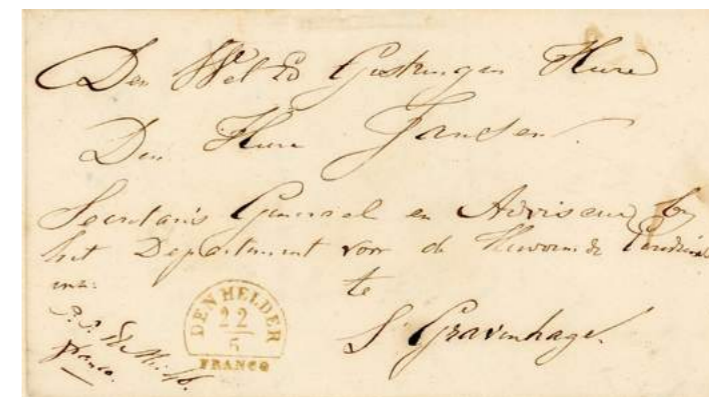 Den Wel Ed Gestrengen Heere
Den Heere Jansen.
Secretaris Generaal en Adviseur by
het Departement voor de Hervormde Eeredienst
enz: te
S Gravenhage.
DEN HELDER
22
5
FRANCO
franco.